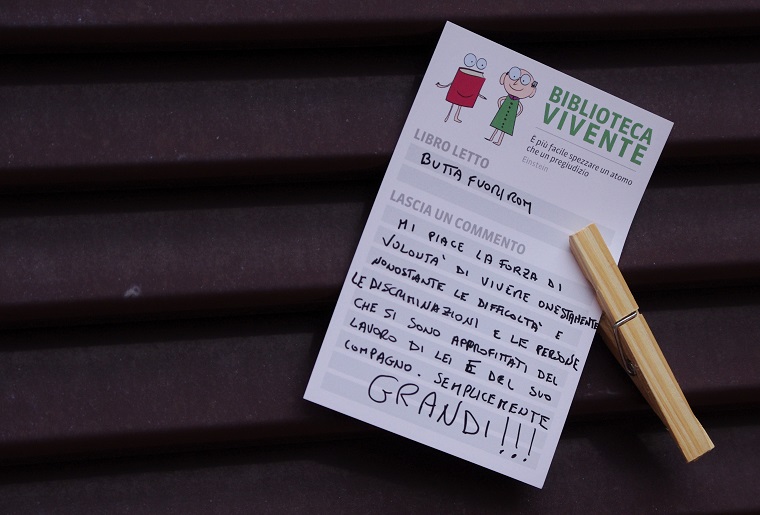 BIBLIOTECA
VIVENTE
È più facile spezzare un atomo
che un pregiudizio
Einstein
LIBRO LETTO
BUTTA FUORI ROM
LASCIA UN COMMENTO
MI PIACE LA FORZA DI
VOLONTA' DI VIVERE ONESTAMENTE
NONOSTANTE LE DIFFICOLTA' E
LE DISCRIMINAZIONI E LE PERSONE
CHE SI SONO APPROFITTATI DEL
LAVORO DI LEI E DEL SUO
COMPAGNO. SEMPLICEMENTE
GRANDI!!!